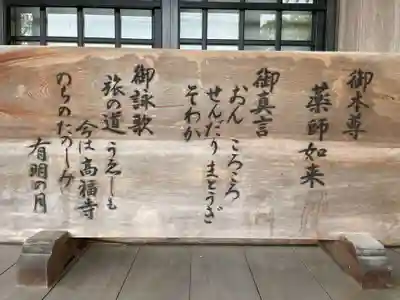 御本尊
薬師如来
御真言
おん ころころ
せんだりまとうぎ
そわか
御詠歌
旅の道 うゑしも
今は高福寺
のちのたのしみ
有明の月